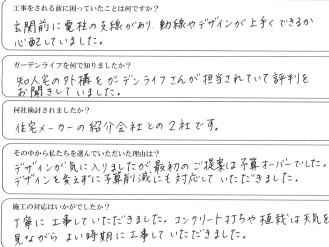 工事をされる前に困っていたことは何ですか?
玄関前に電柱の支線があり、動線やデザインが上手くできるか
心配していました。
ガーデンライフを何で知りましたか?
知人宅の外構をガーデンライフさんが担当されていて評判を
お聞きしていました。
何社検討されましたか?
住宅メーカーの紹介会社との2社です。
その中から私たちを選んでいただいた理由は?
デザインが気に入りましたが最初のご提案は予算オーバーでした。
デザインを変えずに予算削減にも対応していただきました。
施工の対応はいかがでしたか?
丁寧に工事していただきました。コンクリート打ちや植栽は天気を
見ながらよい時期に工事していただきました。